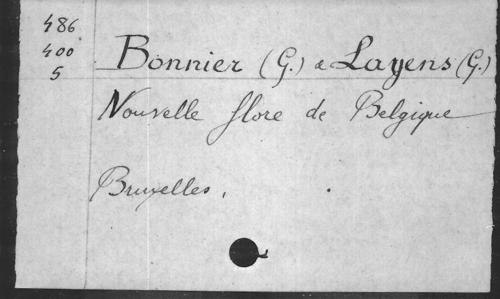 486
400
5
Bonnier (G.) & Layens (G.)
Nouvelle flore de Belgique
Bruxelles.